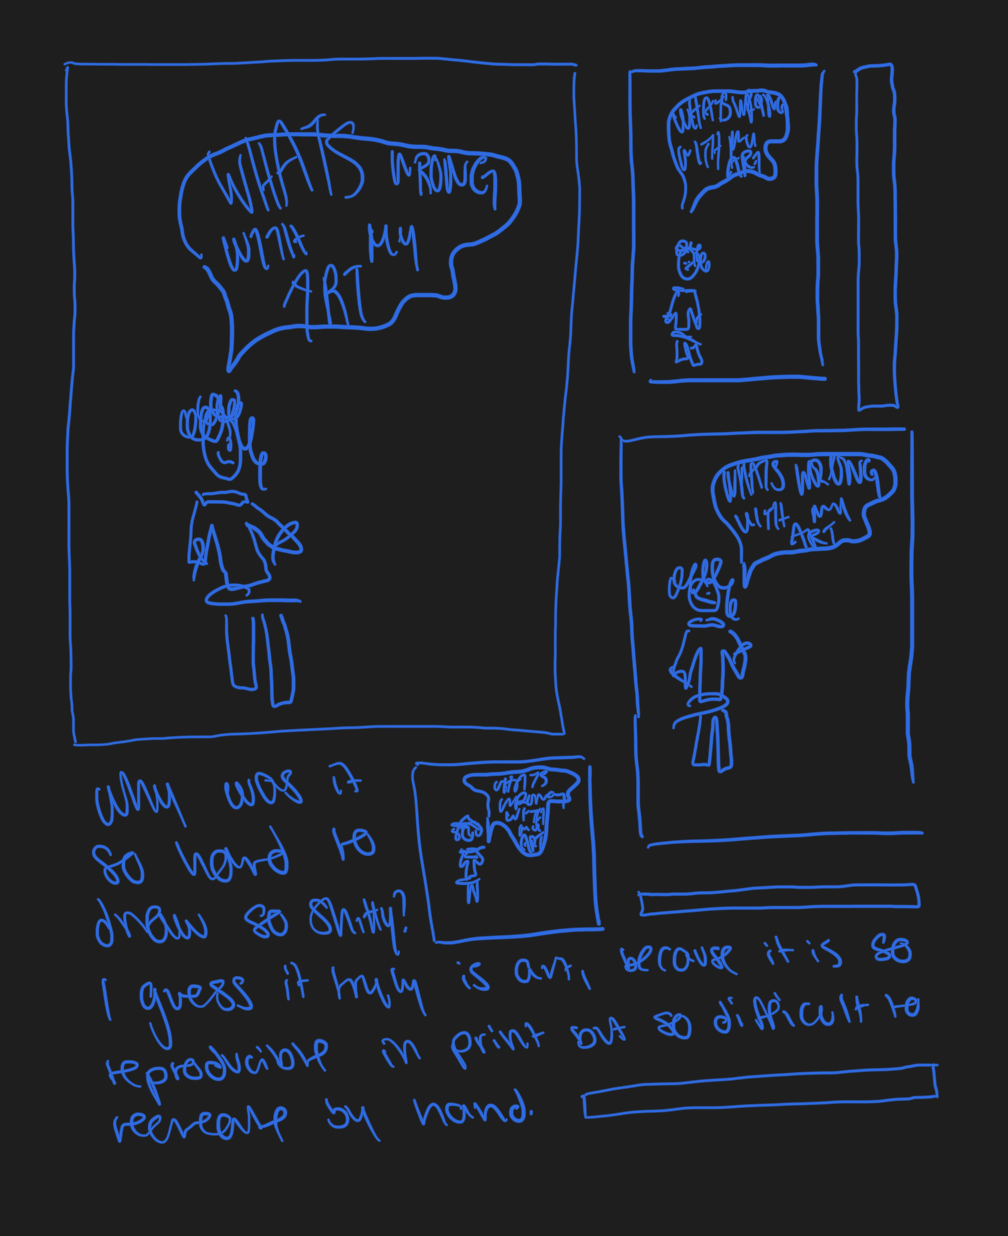 WHATS WRONG
WITH MY
ART
WHATS WRONG
WITH MY
ART
WHATS WRONG
WITH MY
ART
WHATS
WRONG
WITH
MY
ART
Why was it
so hard to
draw so shitty?
I guess it truly is art, because it is so
reproducible in print but so difficult to
recreate by hand.